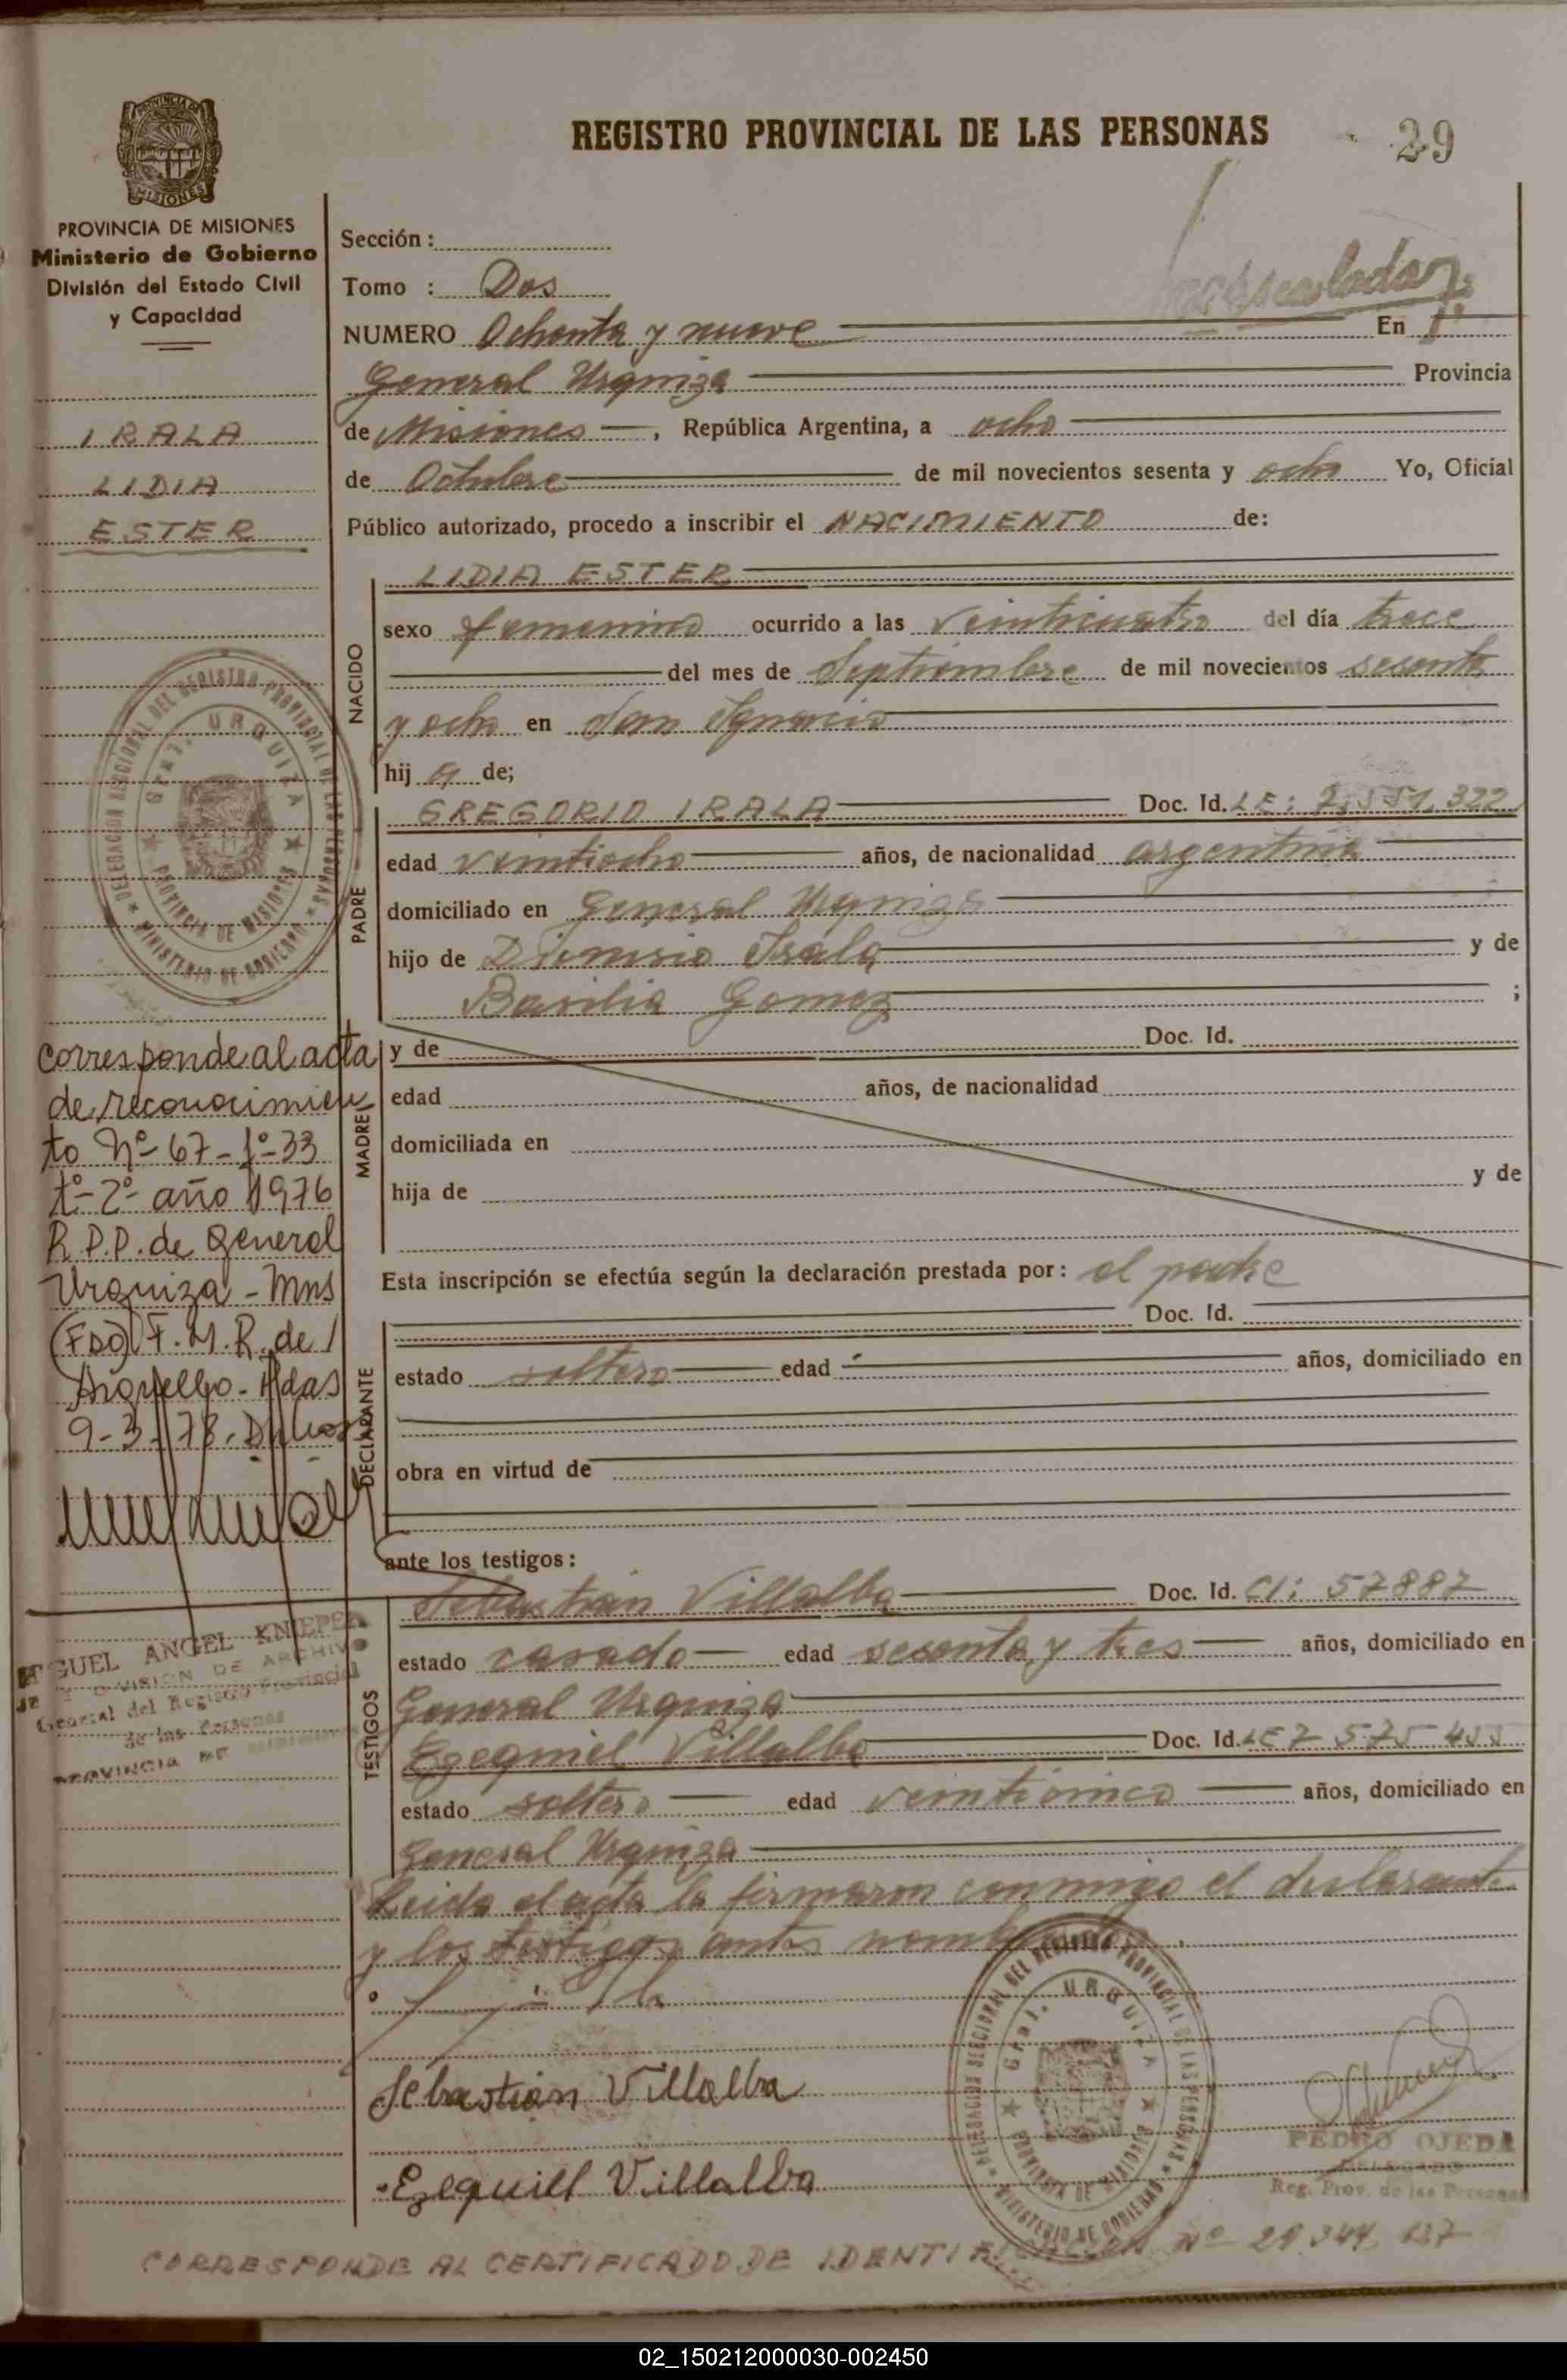 PROVINCIA DE MISIONES
Ministerio de Gobierno
División del Estado Civil
y Capacidad
IRALA
LIDIA
ESTER
REGISTRO PROVINCIAL DE LAS PERSONAS 29
Sección :
Tomo : Dos
NUMERO Ochenta y nueve En
General Urquiza Provincia
de Misiones, República Argentina, a ocho
de Octubre de mil novecientos sesenta y ocho Yo, Oficial
Público autorizado, procedo a inscribir el NACIMIENTO de:
NACIDO
LIDIA ESTER
sexo femenino ocurrido a las veinticuatro del día trece
del mes de Septiembre de mil novecientos sesenta
y ocho en San Ignacio
hij a de;
PADRE
GREGORIO IRALA Doc. Id. LE: 7.551.322
edad veintiocho años, de nacionalidad argentina
domiciliado en General Urquiza
hijo de Dionisio Irala y de
Basilia Gomez ;
MADRE
y de Doc. Id.
edad años, de nacionalidad
domiciliada en
hija de y de
Esta inscripción se efectúa según la declaración prestada por: el padre
DECLARANTE
Doc. Id.
estado soltero edad años, domiciliado en
obra en virtud de
ante los testigos:
TESTIGOS
Sebastian Villalba Doc. Id. CI: 57887
estado casado edad sesenta y tres años, domiciliado en
General Urquiza
Ezequiel Villalba Doc. Id. LE 7 575 455
estado soltero edad veinticinco años, domiciliado en
General Urquiza
Leida el acta la firmaron conmigo el declarante
y los testigos antes
Sebastian Villalba
Ezequiel Villalba
corresponde al acta
de reconocimien
to Nº 67-fº-33
tº-2º año 1976
R.P.P. de General
Urquiza - Mns
(Fdo) F.M.R. de
Arguello - Pdas
9-3-78.
MIGUEL ANGEL KNIEPER
DIVISION DE ARCHIVO
General del Registro Provincial
de las Personas
PROVINCIA DE
DELEGACION SECCIONAL DEL REGISTRO PROVINCIAL DE LAS PERSONAS
Gral. URQUIZA
PROVINCIA DE MISIONES
MINISTERIO DE GOBIERNO
DELEGACION SECCIONAL DEL REGISTRO PROVINCIAL DE LAS PERSONAS
Gral. URQUIZA
PROVINCIA DE MISIONES
MINISTERIO DE GOBIERNO
PEDRO OJEDA
DELEGADO
Reg. Prov. de las Personas
CORRESPONDE AL CERTIFICADO DE IDENTIFICACION Nº
02_150212000030-002450